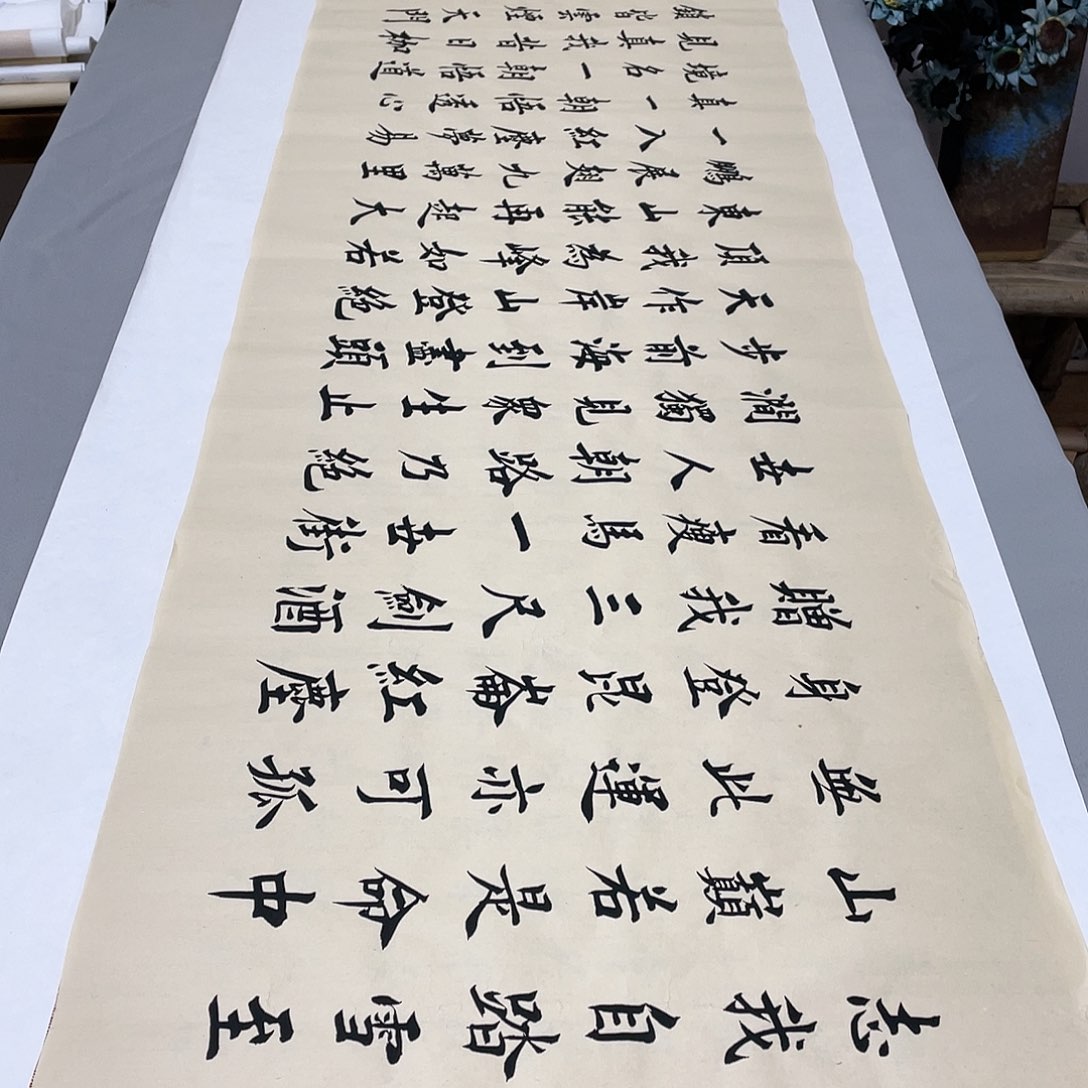 志我自踏雪至
山巔若是命中
無此運亦可孤
身登昆崙紅塵
贈我三尺劍酒
看瘦馬一世街
世人朝路乃絕
澗獨見眾生止
步前海到盡頭
天作岸山登絕
頂我為峰如若
東山能再起大
鵬展翅九萬里
一入紅塵夢易
真一朝悟透心
境名一朝悟道
見真我昔日枷
鎖皆雲煙天門